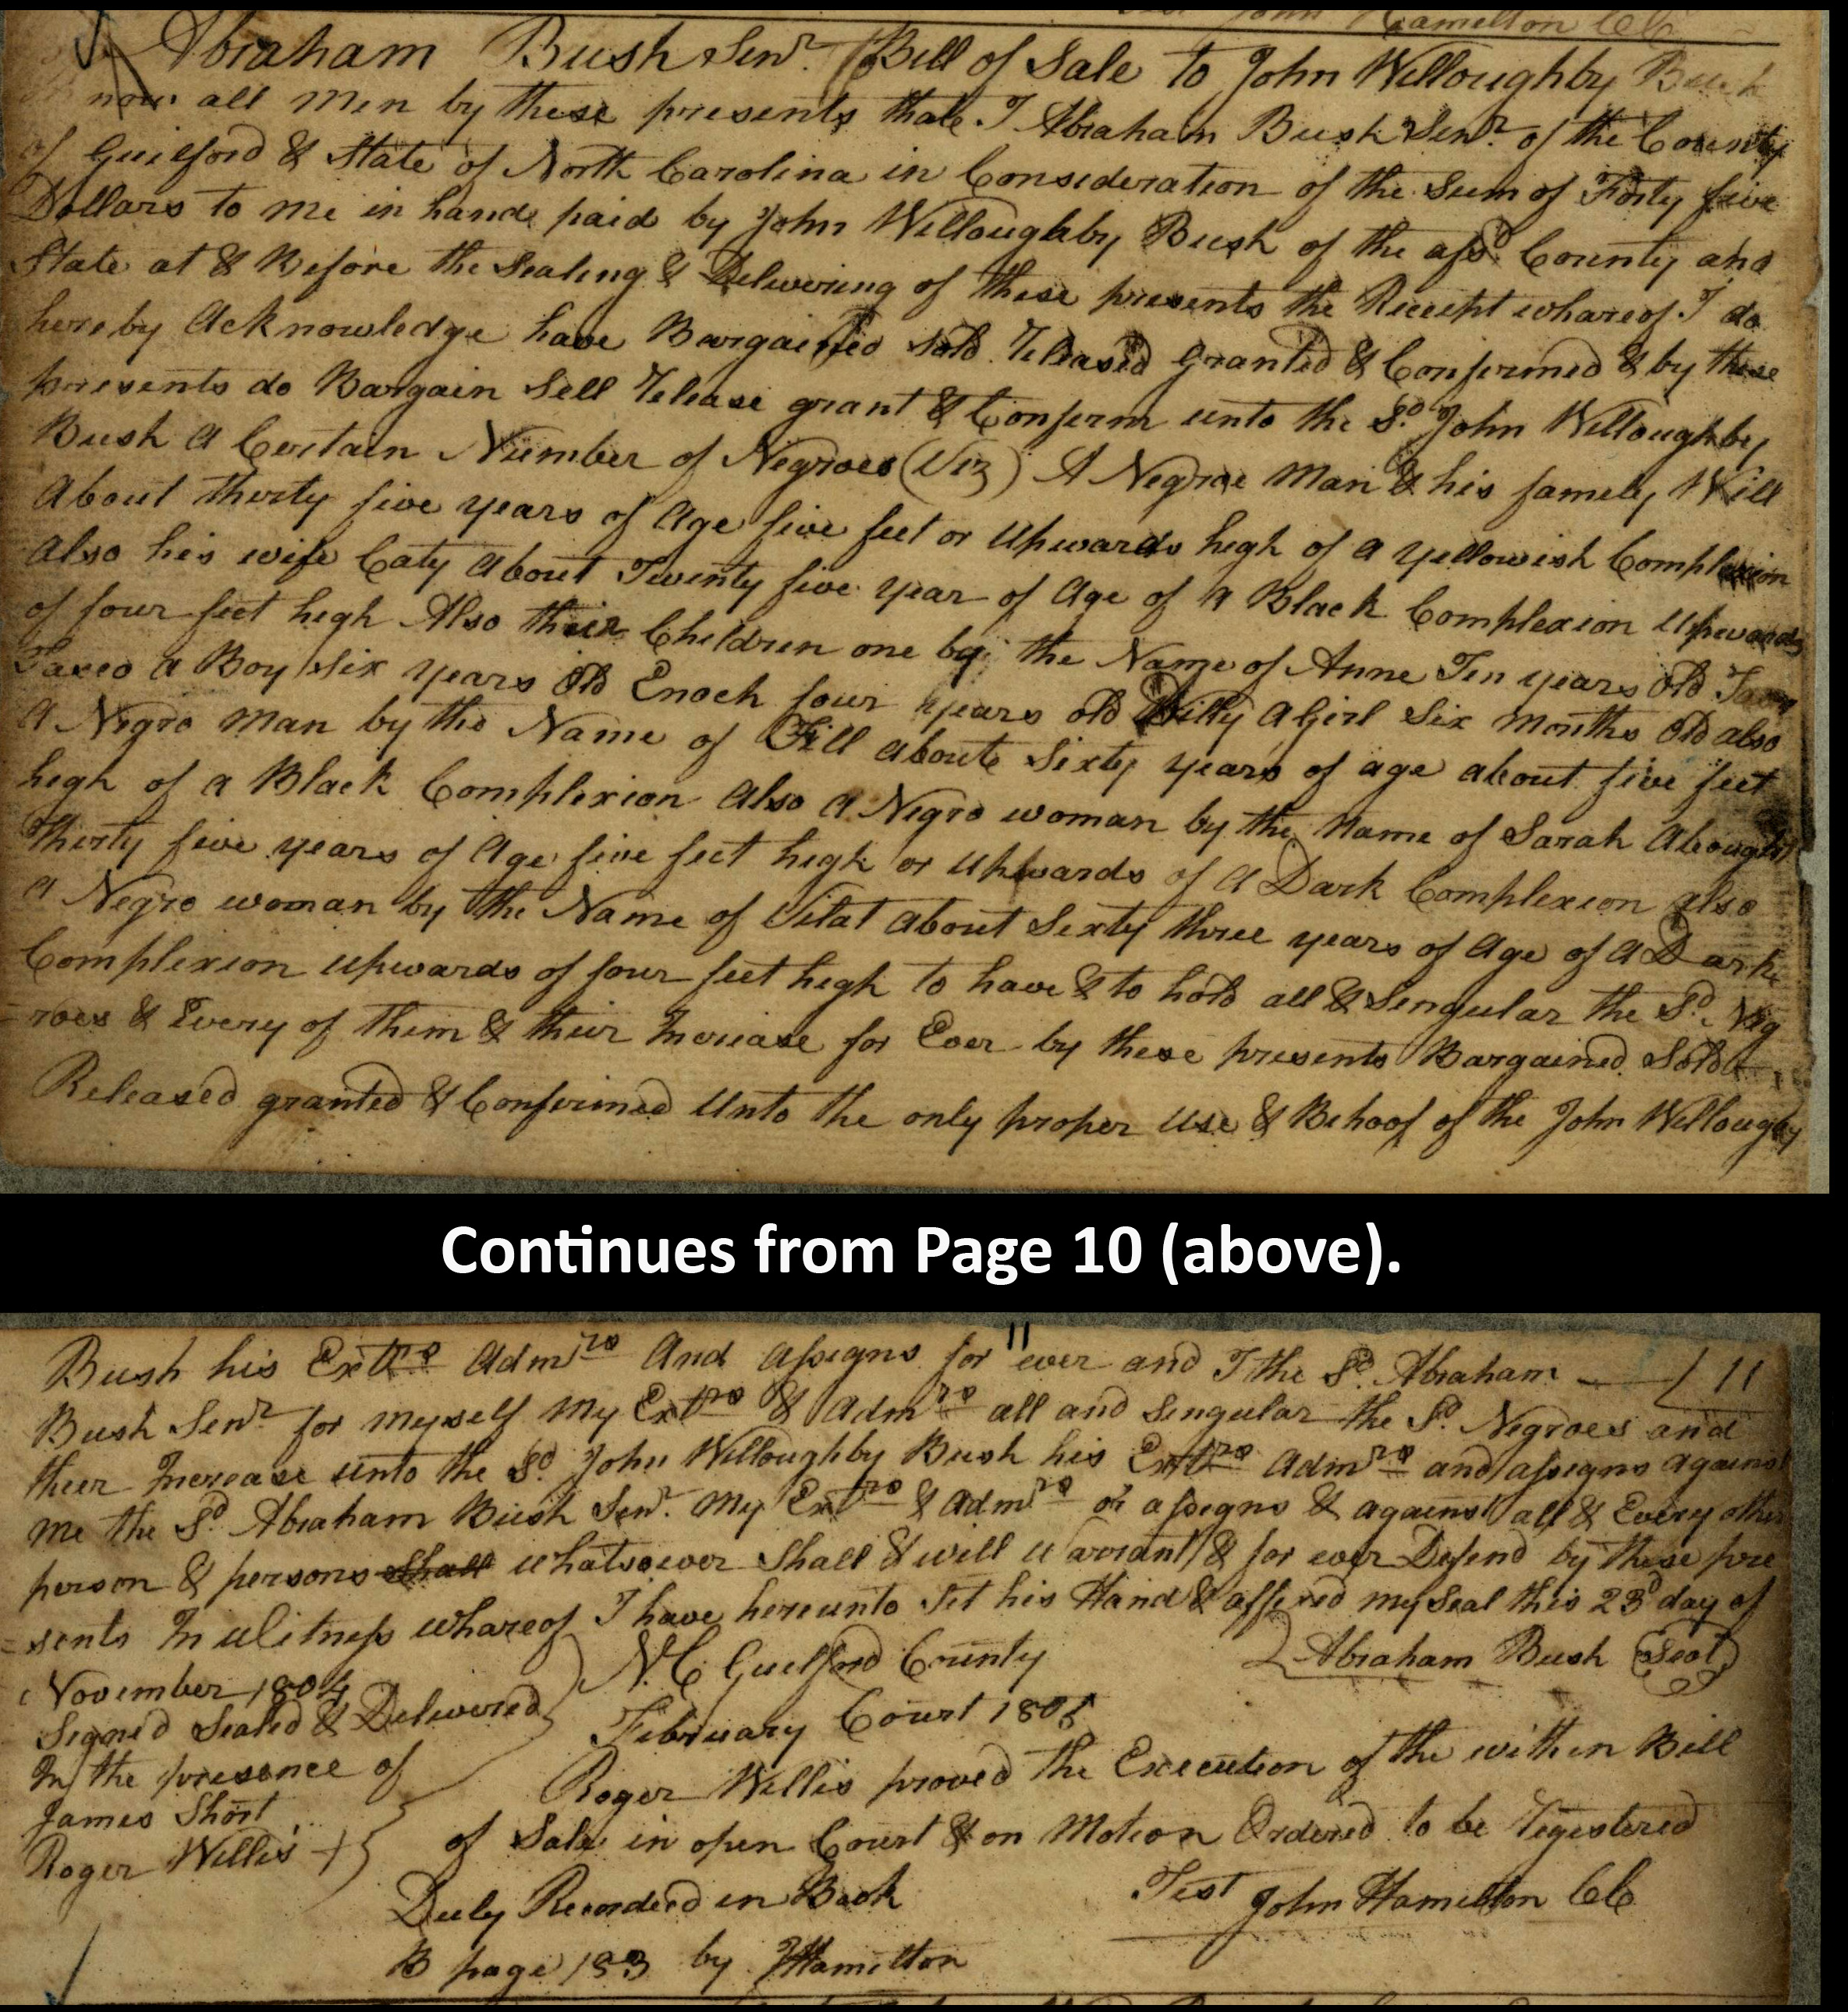 John Hamelton CC
Abraham Bush Senr. Bill of Sale to John Willoughby Bush
now all Men by these presents that I Abraham Bush Senr. of the County
of Guilford & State of North Carolina in Consideration of the Sum of Forty five
Dollars to me in hand paid by John Willoughby Bush of the afsd. County and
State at & Before the Sealing & Delivering of these presents the Receipt whareof I do
hereby Acknowledge have Bargained Sold Released granted & Confirmed & by these
presents do Bargain Sell Release grant & Confirm unto the Sd. John Willoughby
Bush A Certain Number of Negroes (Viz) A Negroe Man & his famely Will
About thirty five years of Age five feet or Upwards high of a yellowish Complexion
also his wife Caty About Twenty five year of Age of a Black Complexion Upwards
of four feet high Also their Children one by the Name of Anne Ten years Old
a Boy Six years Old Enoch four years old Dilly a Girl Six Months Old also
A Negro Man by the Name of about Sixty years of age about five feet
high of a Black Complexion Also a Negro woman by the Name of Sarah About
Thirty five years of Age five feet high or upwards of a Dark Complexion also
a Negro woman by the Name of About Sixty three years of Age of a Dark
Complexion upwards of four feet high to have & to hold all & Singular the Sd. Neg
=roes & Every of them & their Increase for Ever by these presents Bargained Sold
Released granted & Confirmed Unto the only proper Use & Behoof of the John Willoughby
Continues from Page 10 (above).
11
Bush his Extrs Admrs And Assigns for ever and I the Sd. Abraham 11
Bush Senr for myself My Extrs & Admrs all and Singular the Sd. Negroes and
their Increase unto the Sd. John Willoughby Bush his Extrs Admrs and assigns against
me the Sd. Abraham Bush Senr. My Extrs & Admrs or assigns & against all & Every other
person & persons shall whatsoever Shall & will Warrant & for ever Defend by these pre
=sents In Witness whareof I have hereunto Set his Hand & affixed my Seal this 23d day of
November 1804
Abraham Bush (Seal)
Signed Sealed & Delivered
In the presence of
James Short
Roger Willis +
N.C. Guilford County
February Court 1805
Roger Willis proved the Execution of the within Bill
of Sale in open Court & on Motion Ordered to be Registered
Test John Hamilton CC
Duly Recorded in Book
B page 183 by JHamilton